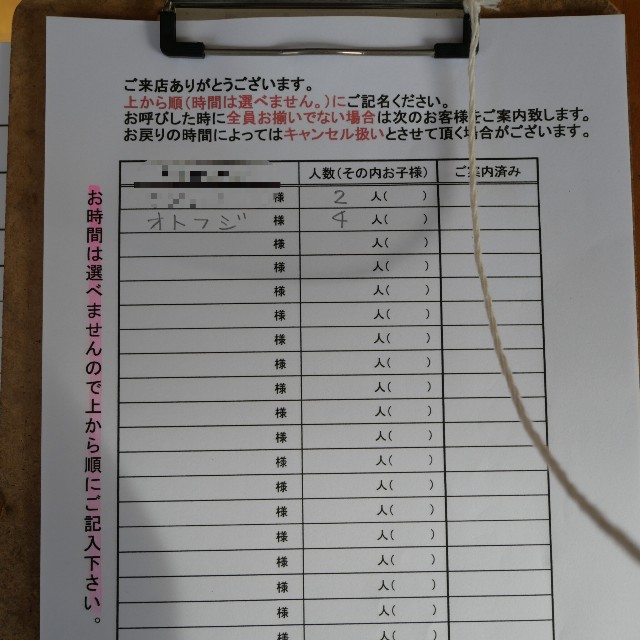 ご来店ありがとうございます。
上から順(時間は選べません。)にご記名ください。
お呼びした時に全員お揃いでない場合は次のお客様をご案内致します。
お戻りの時間によってはキャンセル扱いとさせて頂く場合がございます。
人数(その内お子様) ご案内済み
様 2 人( )
オトフジ 様 4 人( )
様 人( )
様 人( )
様 人( )
様 人( )
様 人( )
様 人( )
様 人( )
様 人( )
様 人( )
様 人( )
様 人( )
様 人( )
様 人( )
様 人( )
様 人( )
様 人( )
様 人( )
お時間は選べませんので上から順にご記入下さい。